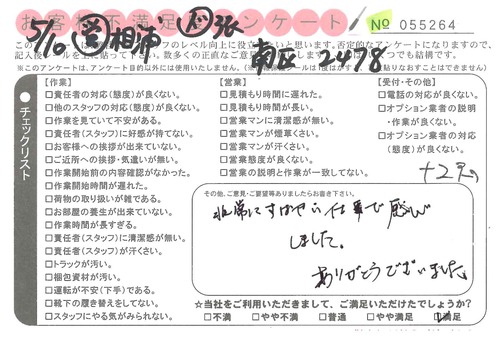 お客様不満足度アンケート
No 055264
5/10
南区 2478
記入後シールを上に貼って下さい。
※このアンケートは、アンケート目的以外には使用いたしません。
●チェックリスト
【作業】
□責任者の対応(態度)が良くない。
□他のスタッフの対応(態度)が良くない。
□作業を見ていて不安がある。
□責任者(スタッフ)に好感が持てない。
□お客様への挨拶が出来ていない。
□ご近所への挨拶・気遣いが無い。
□作業開始前の内容確認がなかった。
□作業開始時間が遅れた。
□荷物の取り扱いが雑である。
□お部屋の養生が出来ていない。
□作業時間が長すぎる。
□責任者(スタッフ)に清潔感が無い。
□責任者(スタッフ)が汗くさい。
□トラックが汚い。
□梱包資材が汚い。
□運転が不安(下手)である。
□靴下の履き替えをしてない。
□スタッフにやる気がみられない。
【営業】
□見積もり時間に遅れた。
□見積もり時間が長い。
□営業マンに清潔感が無い。
□営業マンが煙草くさい。
□営業マンが汗くさい。
□営業態度が良くない。
□営業の説明と作業が一致してない。
【受付・その他】
□電話の対応が良くない。
□オプション業者の説明
・作業が良くない。
□オプション業者の対応
(態度)が良くない。
その他、ご意見・ご要望等ありましたらお書き下さい。
非常にすばやい仕事で感心
しました。
ありがとうございました。
☆当社をご利用いただきまして、ご満足いただけたでしょうか?
□不満 □やや不満 □普通 □やや満足 □満足